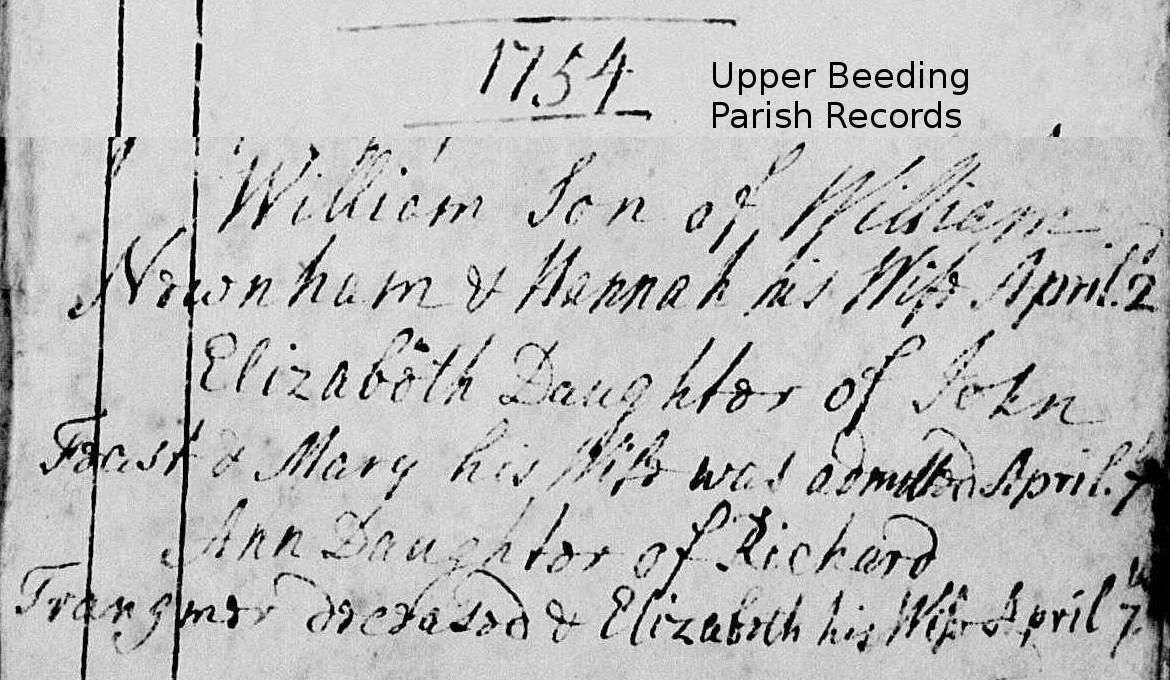 1754
Upper Beeding
Parish Records
William Son of William
Newnham & Hannah his Wife April. 2
Elizabeth Daughter of John
Feast & Mary his Wife was admitted April. 7
Ann Daughter of Richard
Trangmer deceased & Elizabeth his Wife April 7